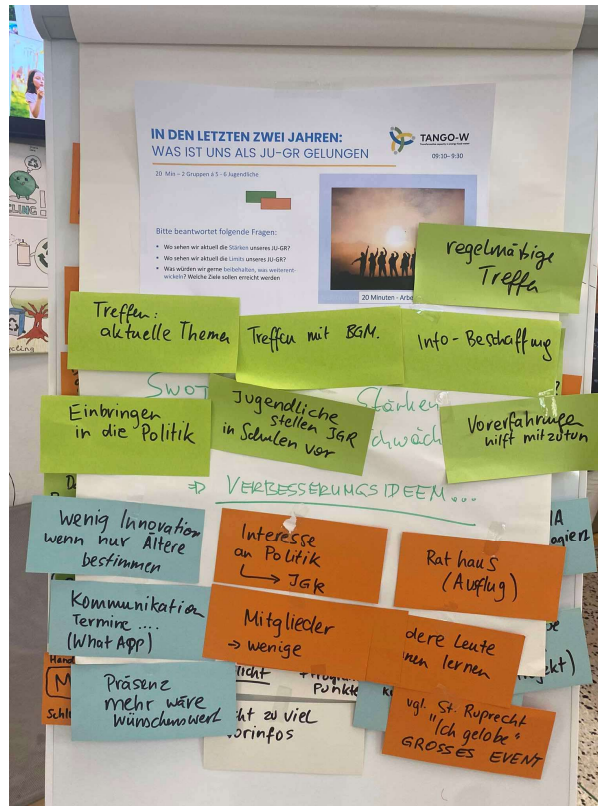 IN DEN LETZTEN ZWEI JAHREN:
WAS IST UNS ALS JU-GR GELUNGEN
TANGO-W
09:10– 9:30
20 Min – 2 Gruppen á 5 - 6 Jugendliche
Bitte beantwortet folgende Fragen:
• Wo sehen wir aktuell die Stärken unseres JU-GR?
• Wo sehen wir aktuell die Limits unseres JU-GR?
• Was würden wir gerne beibehalten, was weiterent-
wickeln? Welche Ziele sollen erreicht werden
20 Minuten - Arbe
regelmäßige
Treffen
Treffen:
aktuelle Themen
Treffen mit BGM.
Info-Beschaffung
SWOT
Stärken
chwäch
Einbringen
in die Politik
Jugendliche
stellen JGR
in Schulen vor
Vorerfahrungen
hilft mitzutun
⇒ VERBESSERUNGSIDEEN...
Wenig Innovation
wenn nur Ältere
bestimmen
Interesse
an Politik
↳ JGR
Rathaus
(Ausflug)
Kommunikation
Termine ....
(WhatApp)
Mitglieder
→ wenige
dere Leute
nen lernen
jekt)
Präsenz
mehr wäre
wünschenswert
licht
Punkte
cht zu viel
orinfos
vgl. St. Ruprecht
"Ich gelobe"
GROSSES EVENT